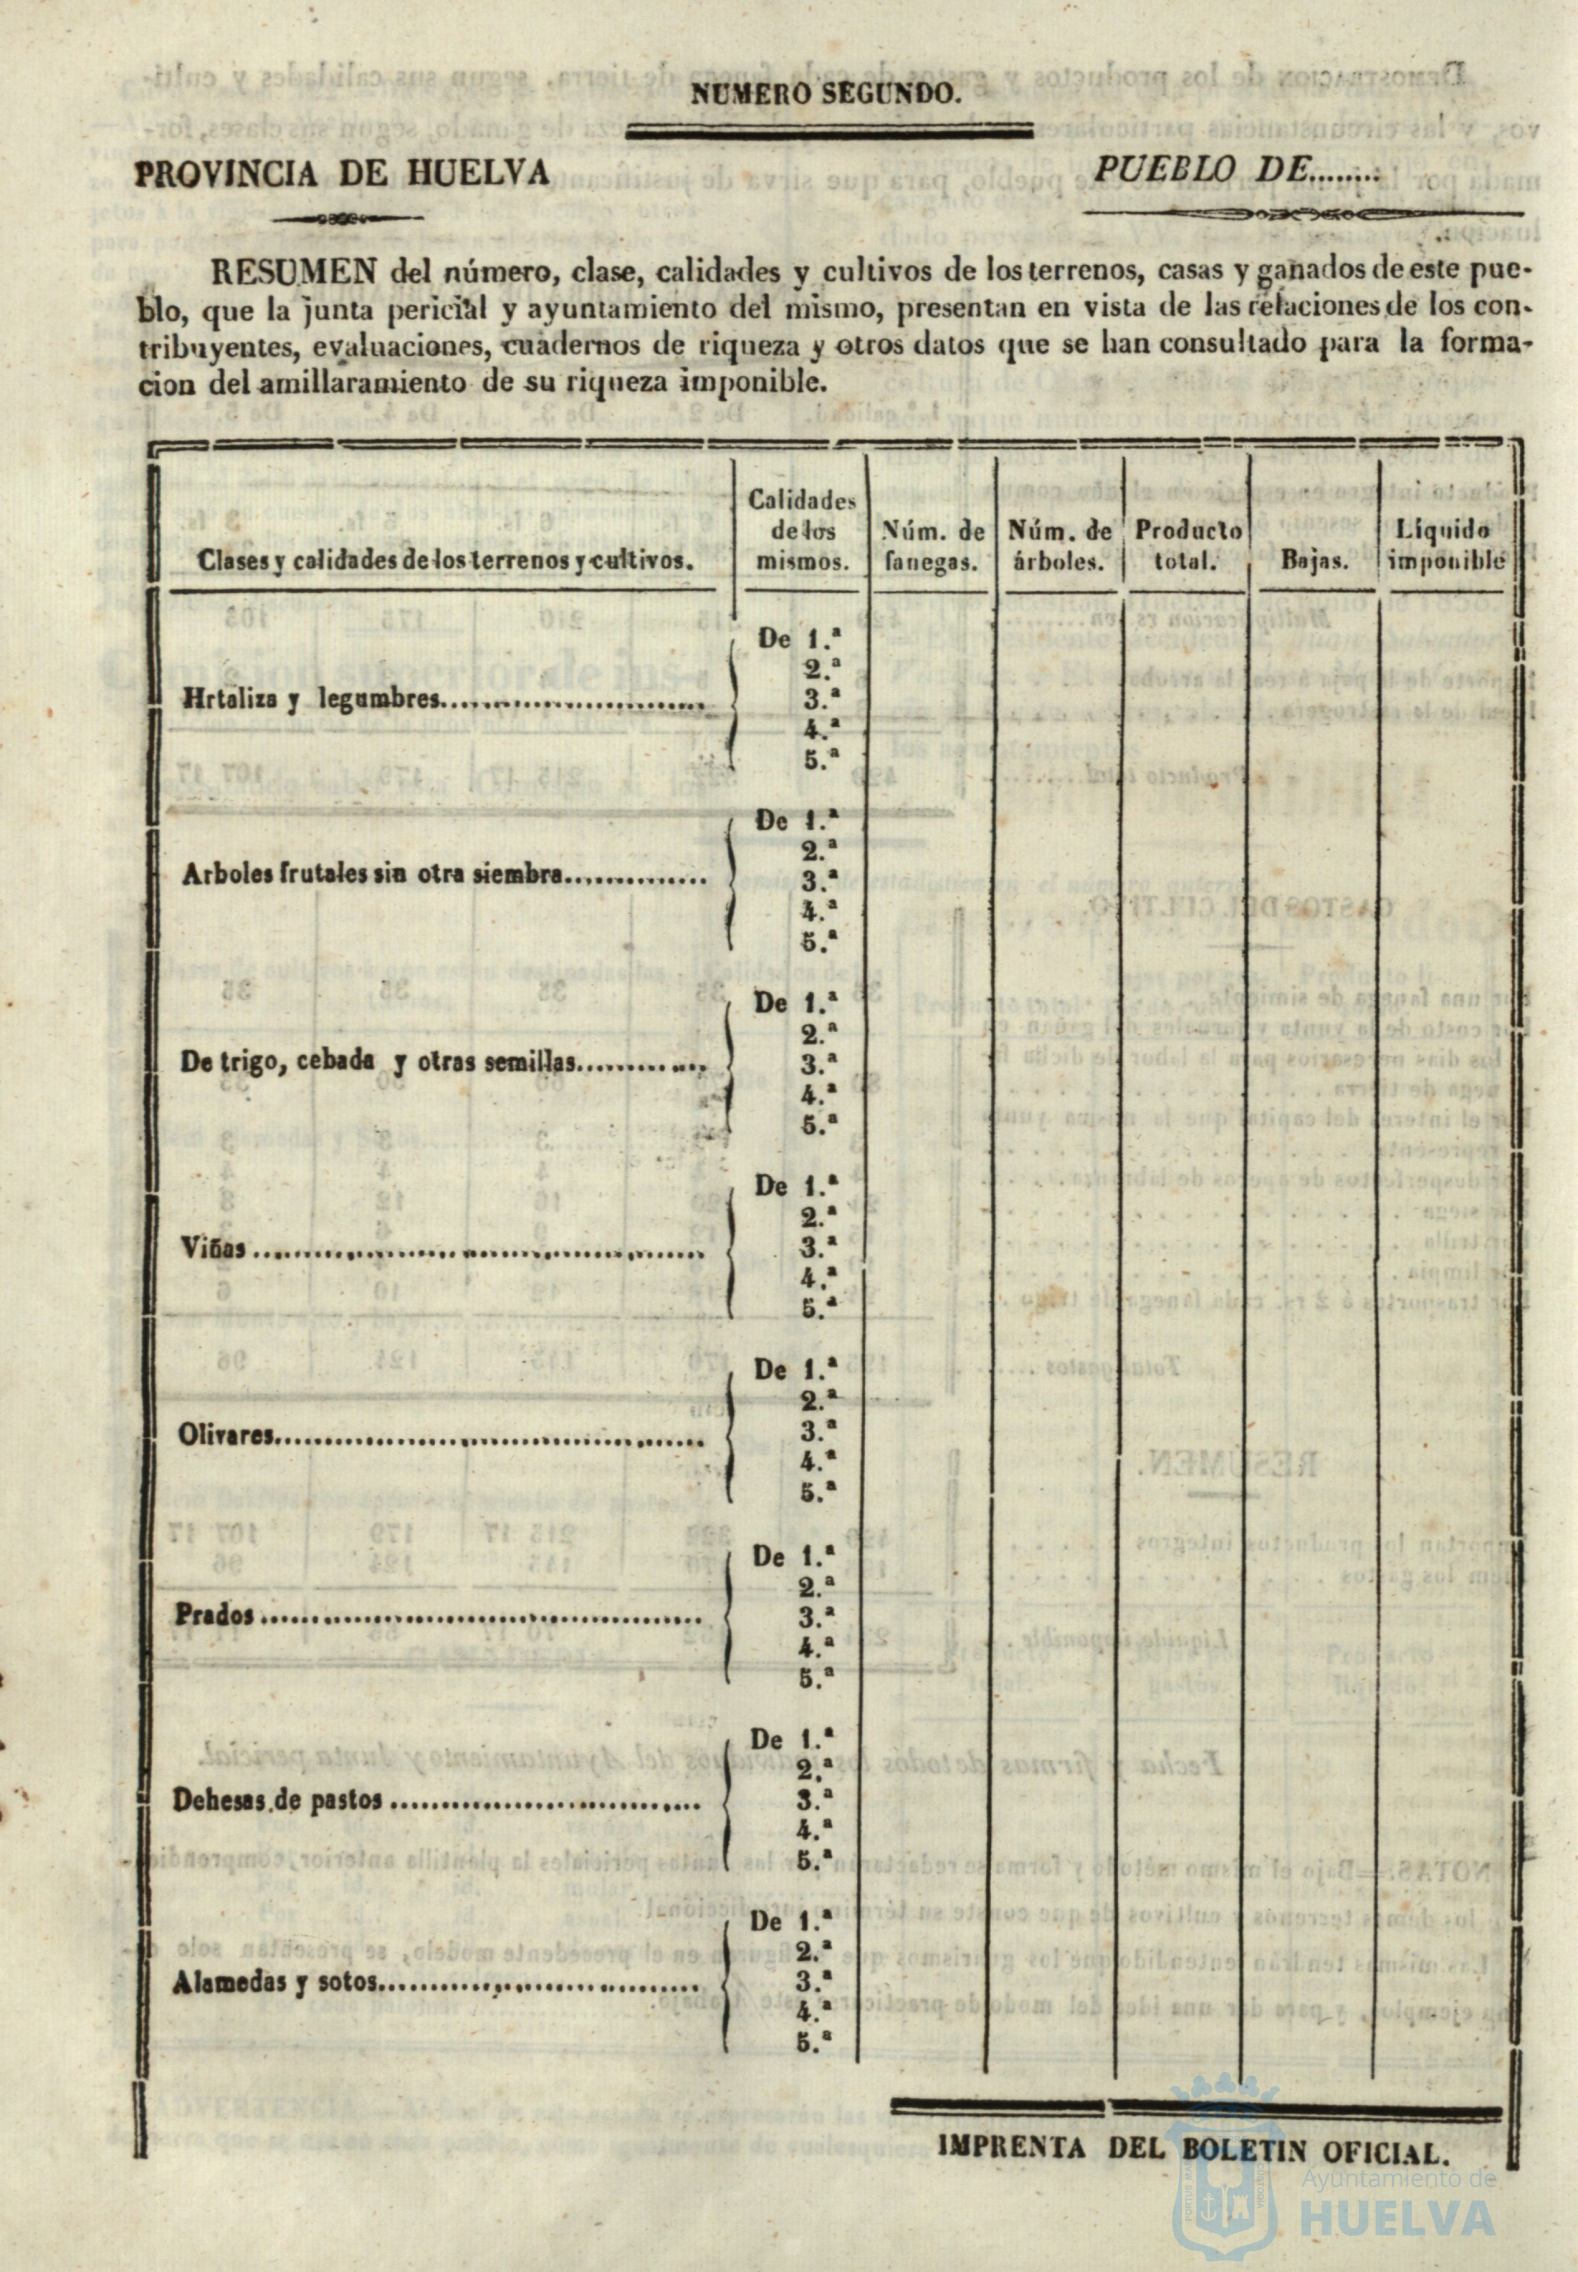 NUMERO SEGUNDO.
PROVINCIA DE HUELVA
PUEBLO DE........
RESUMEN del número, clase, calidades y cultivos de los terrenos, casas y ganados de este pue-
blo, que la junta pericial y ayuntamiento del mismo, presentan en vista de las relaciones de los con-
tribuyentes, evaluaciones, cuadernos de riqueza y otros datos que se han consultado para la forma-
cion del amillaramiento de su riqueza imponible.
Clases y calidades de los terrenos y cultivos.
Calidades
de los
mismos.
Núm. de
fanegas.
Núm. de
árboles.
Producto
total.
Bajas.
Líquido
imponible
Hrtaliza y legumbres........................
De 1.ª
2.ª
3.ª
4.ª
5.ª
Arboles frutales sin otra siembra..............
De 1.ª
2.ª
3.ª
4.ª
5.ª
De trigo, cebada y otras semillas.............
De 1.ª
2.ª
3.ª
4.ª
5.ª
Viñas ........................................
De 1.ª
2.ª
3.ª
4.ª
5.ª
Olivares......................................
De 1.ª
2.ª
3.ª
4.ª
5.ª
Prados ........................................
De 1.ª
2.ª
3.ª
4.ª
5.ª
Dehesas de pastos ............................
De 1.ª
2.ª
3.ª
4.ª
5.ª
Alamedas y sotos.............................
De 1.ª
2.ª
3.ª
4.ª
5.ª
IMPRENTA DEL BOLETIN OFICIAL.
Ayuntamiento de
HUELVA